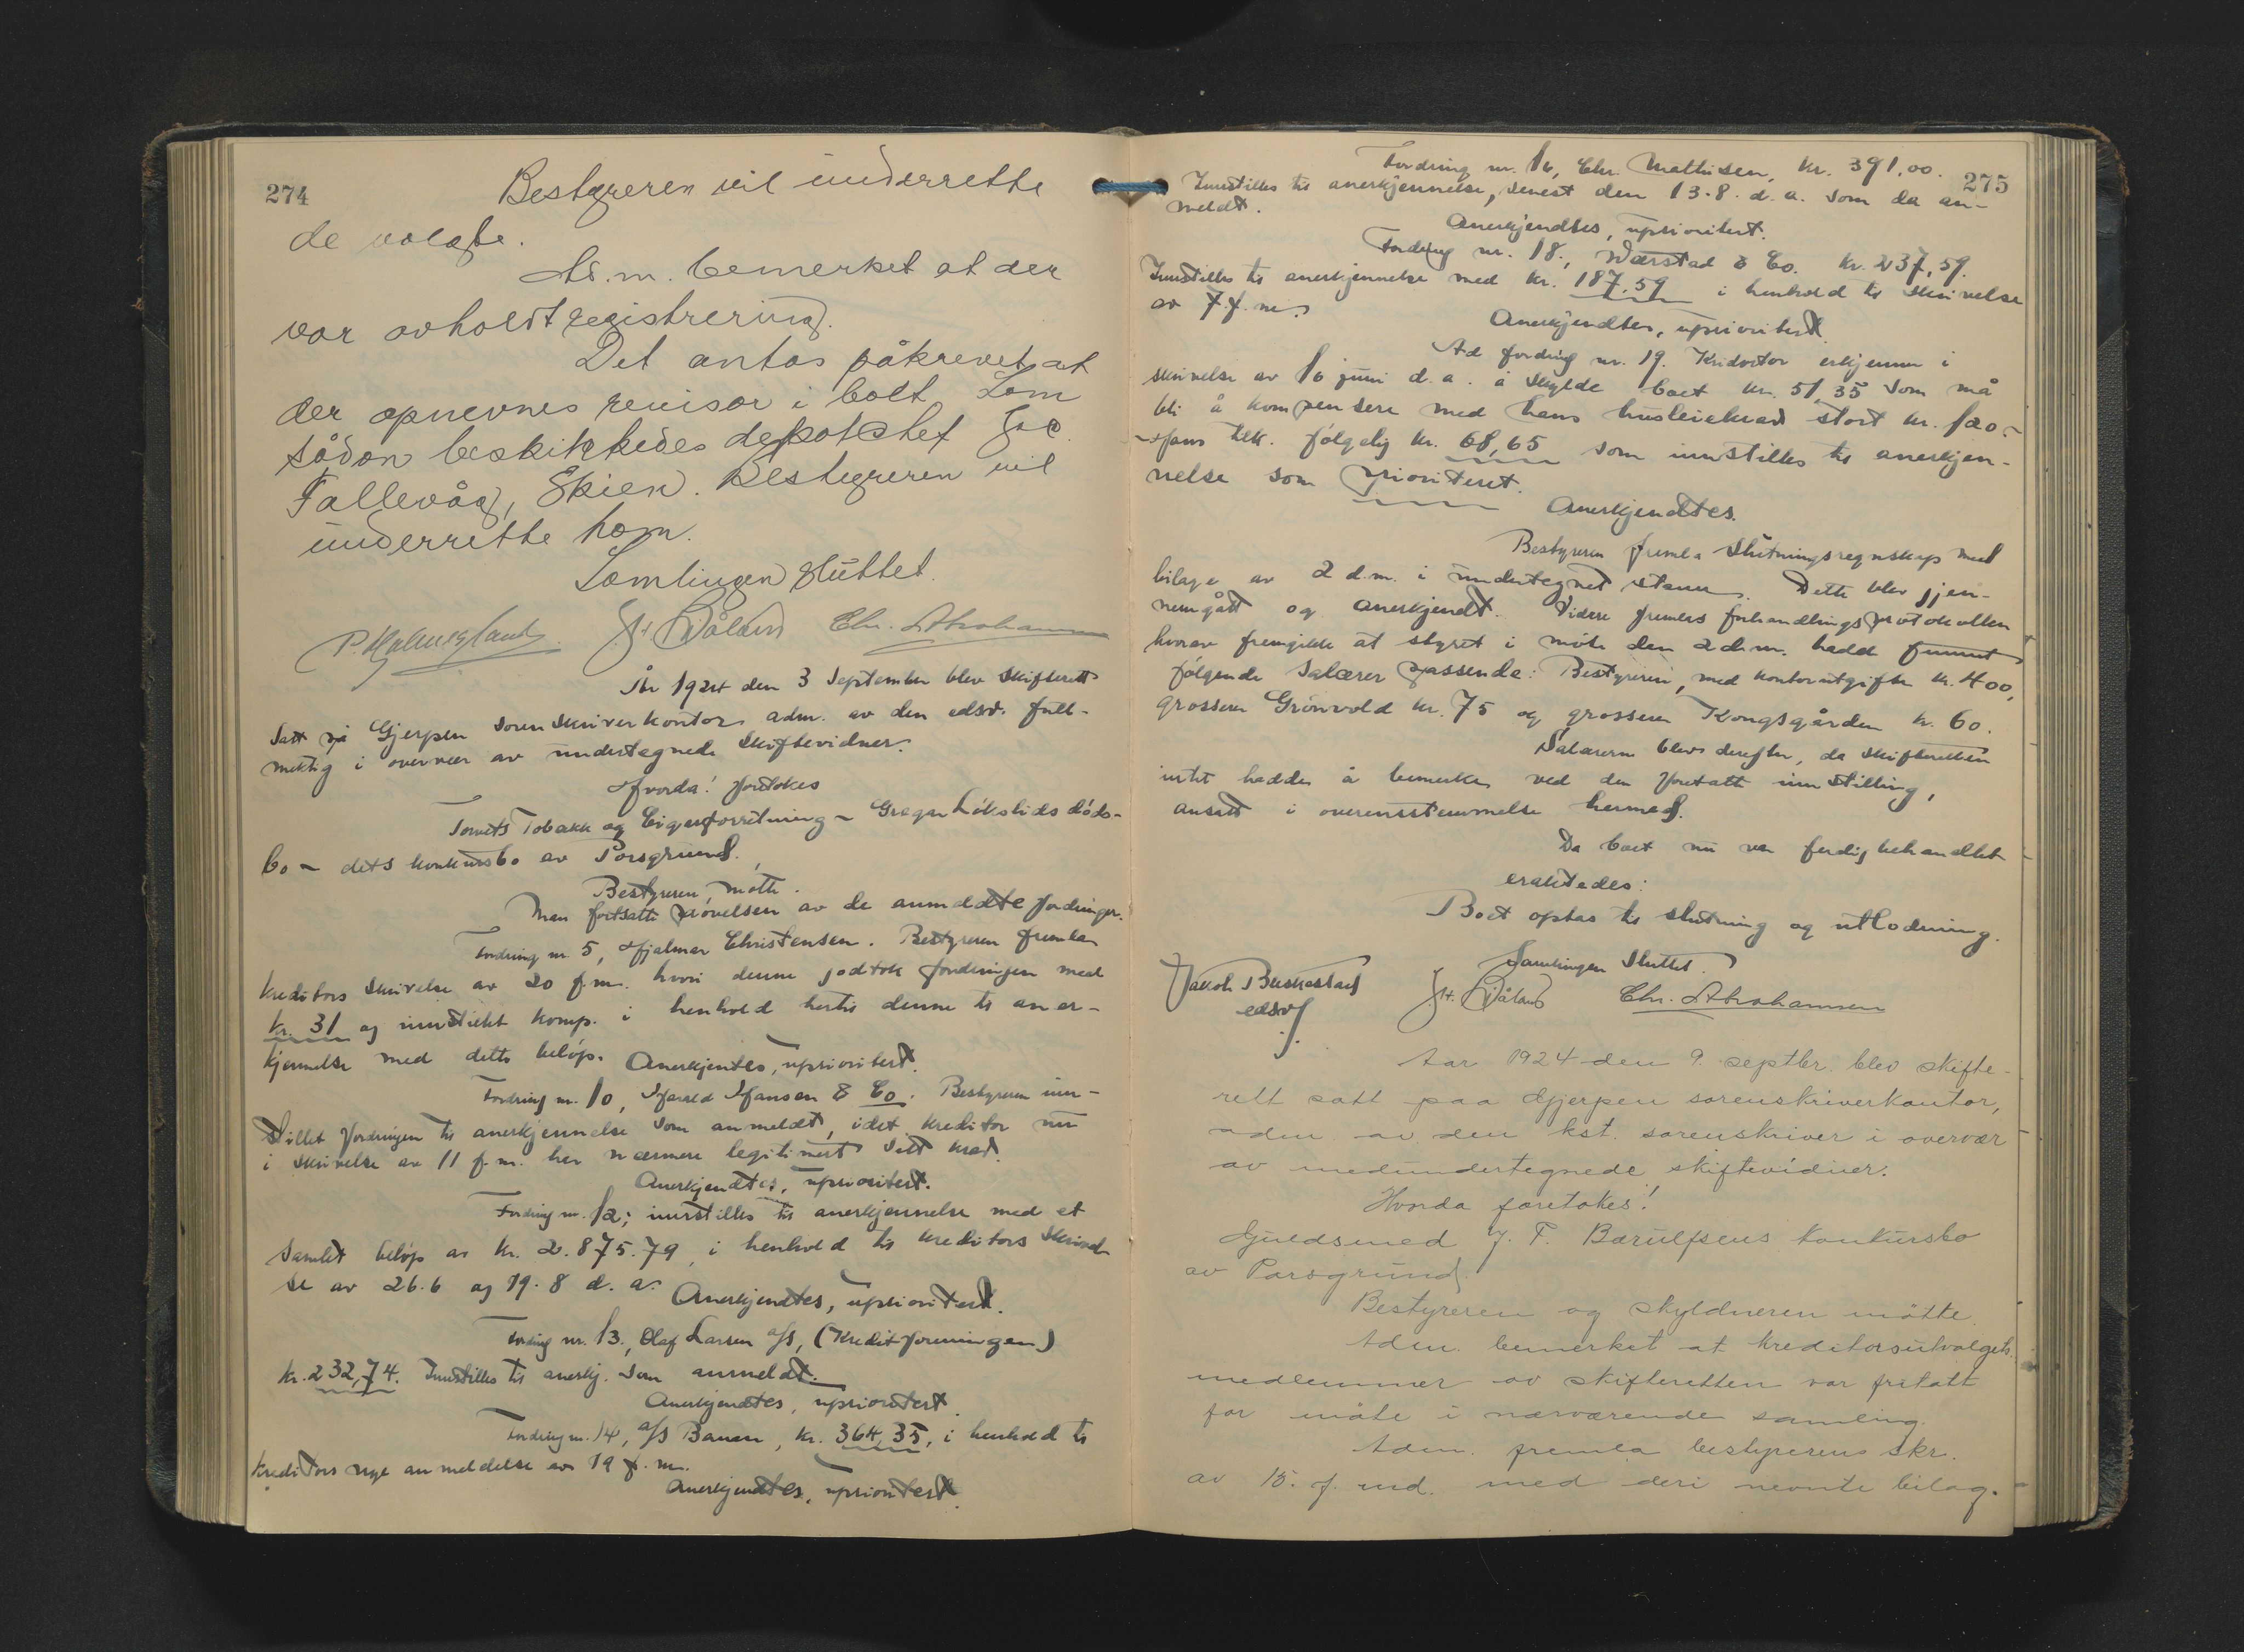 274
Bestyreren vil underrette
de valgte.
Ad.m. bemerket at der
var avholdt registrering.
Det antas påkrevet at
der opnevnes revisor i boet. Som
sådan beskikkedes depotchef Jac.
Fallevåg, Skien. Bestyreren vil
underrette ham.
Samlingen sluttet.
P. Holmesland. H. Båland Chr. Abrahamsen
År 1924 den 3 September blev skifterett
satt på Gjerpen sorenskriverkontor, adm. av den edsv. full-
mektig i overvær av undertegnede skiftevidner.
Hvorda! foretokes
Torvets Tobakk og Cigarforretning – Gregar Løkslids døds-
bo – dets konkursbo av Porsgrund.
Bestyreren møtte.
Man fortsatte prøvelsen av de anmeldte fordringer.
Fordring nr. 5, Hjalmar Christensen. Bestyreren fremla
kreditors skrivelse av 20 f.m. hvori denne godtok fordringen med
kr. 31 og innstillet komp. i henhold hertil denne til aner-
kjennelse med dette beløp. Anerkjentes, uprioritert.
Fordring nr. 10, Harald Hansen & Co. Bestyreren inn-
stillet fordringen til anerkjennelse som anmeldt, idet kreditor nu
i skrivelse av 11 f.m. har nærmere legitimert sitt krav.
Anerkjendtes, uprioritert.
Fordring nr. 12; innstilles til anerkjennelse med et
samlet beløp av kr. 2.875.79, i henhold til kreditors skrivel-
se av 26.6 og 19.8 d.a. Anerkjendtes, uprioritert.
Fordring nr. 13, Olaf Larsen a/s, (Kreditforeningen)
kr. 232,74. Innstilles til anerkj. som anmeldt.
Anerkjendtes, uprioritert.
Fordring nr. 14, a/s Bauen, kr. 364,35, i henhold til
kreditors nye anmeldelse av 19 f.m.
Anerkjendtes, uprioritert.
275
Fordring nr. 16, Chr. Mathisen, kr. 391,00.
Innstilles til anerkjennelse, senest den 13.8. d.a. som da an-
meldt.
Anerkjendtes, uprioritert.
Fordring nr. 18., Wærstad & Co. kr. 237,59.
Innstilles til anerkjennelse med kr. 187,59 i henhold til skrivelse
av 7 f.m.
Anerkjendtes, uprioritert.
Ad fordring nr. 19. Kreditor erkjenner i
skrivelse av 16 juni d.a. å skylde boet kr. 51,35 som må
bli å kompensere med hans husleiekrav stort kr. 120.-
Hans tilk. følgelig kr. 68,65 som innstilles til anerkjen-
nelse som prioritert.
Anerkjendtes.
Bestyreren fremla slutningsregnskap med
bilage av 2 d.m. i undertegnet stand. Dette blev gjen-
nemgått og anerkjendt. Videre fremlas forhandlingsprotokollen
hvorav fremgikk at styret i møte den 2 d.m. hadde funnet
følgende salærer passende: Bestyreren, med kontorutgifter kr. 400,
grosserer Grønvold kr. 75 og grosserer Kongsgården kr. 60.
Salærerne blev derefter, da skifteretten
intet hadde å bemerke ved den foretatte innstilling,
ansatt i overensstemmelse hermed.
Da boet nu var ferdigbehandlet
eraktedes:
Boet optas til slutning og utlodning.
Samlingen sluttet.
Jakob Buskestad H. Båland Chr. Abrahamsen
edsv f.
Aar 1924 den 9. septbr. blev skifte-
rett satt paa Gjerpen sorenskriverkontor,
adm. av den kst. sorenskriver i overvær
av medundertegnede skiftevidner.
Hvorda foretokes!
Guldsmed J. F. Bærulfsens konkursbo
av Porsgrund.
Bestyreren og skyldneren møtte.
Adm. bemerket at kreditorsutvalgets
medlemmer av skifteretten var fritatt
for møte i nærværende samling.
Adm. fremla bestyrerens skr.
av 15. f. md. med deri nevnte bilag.